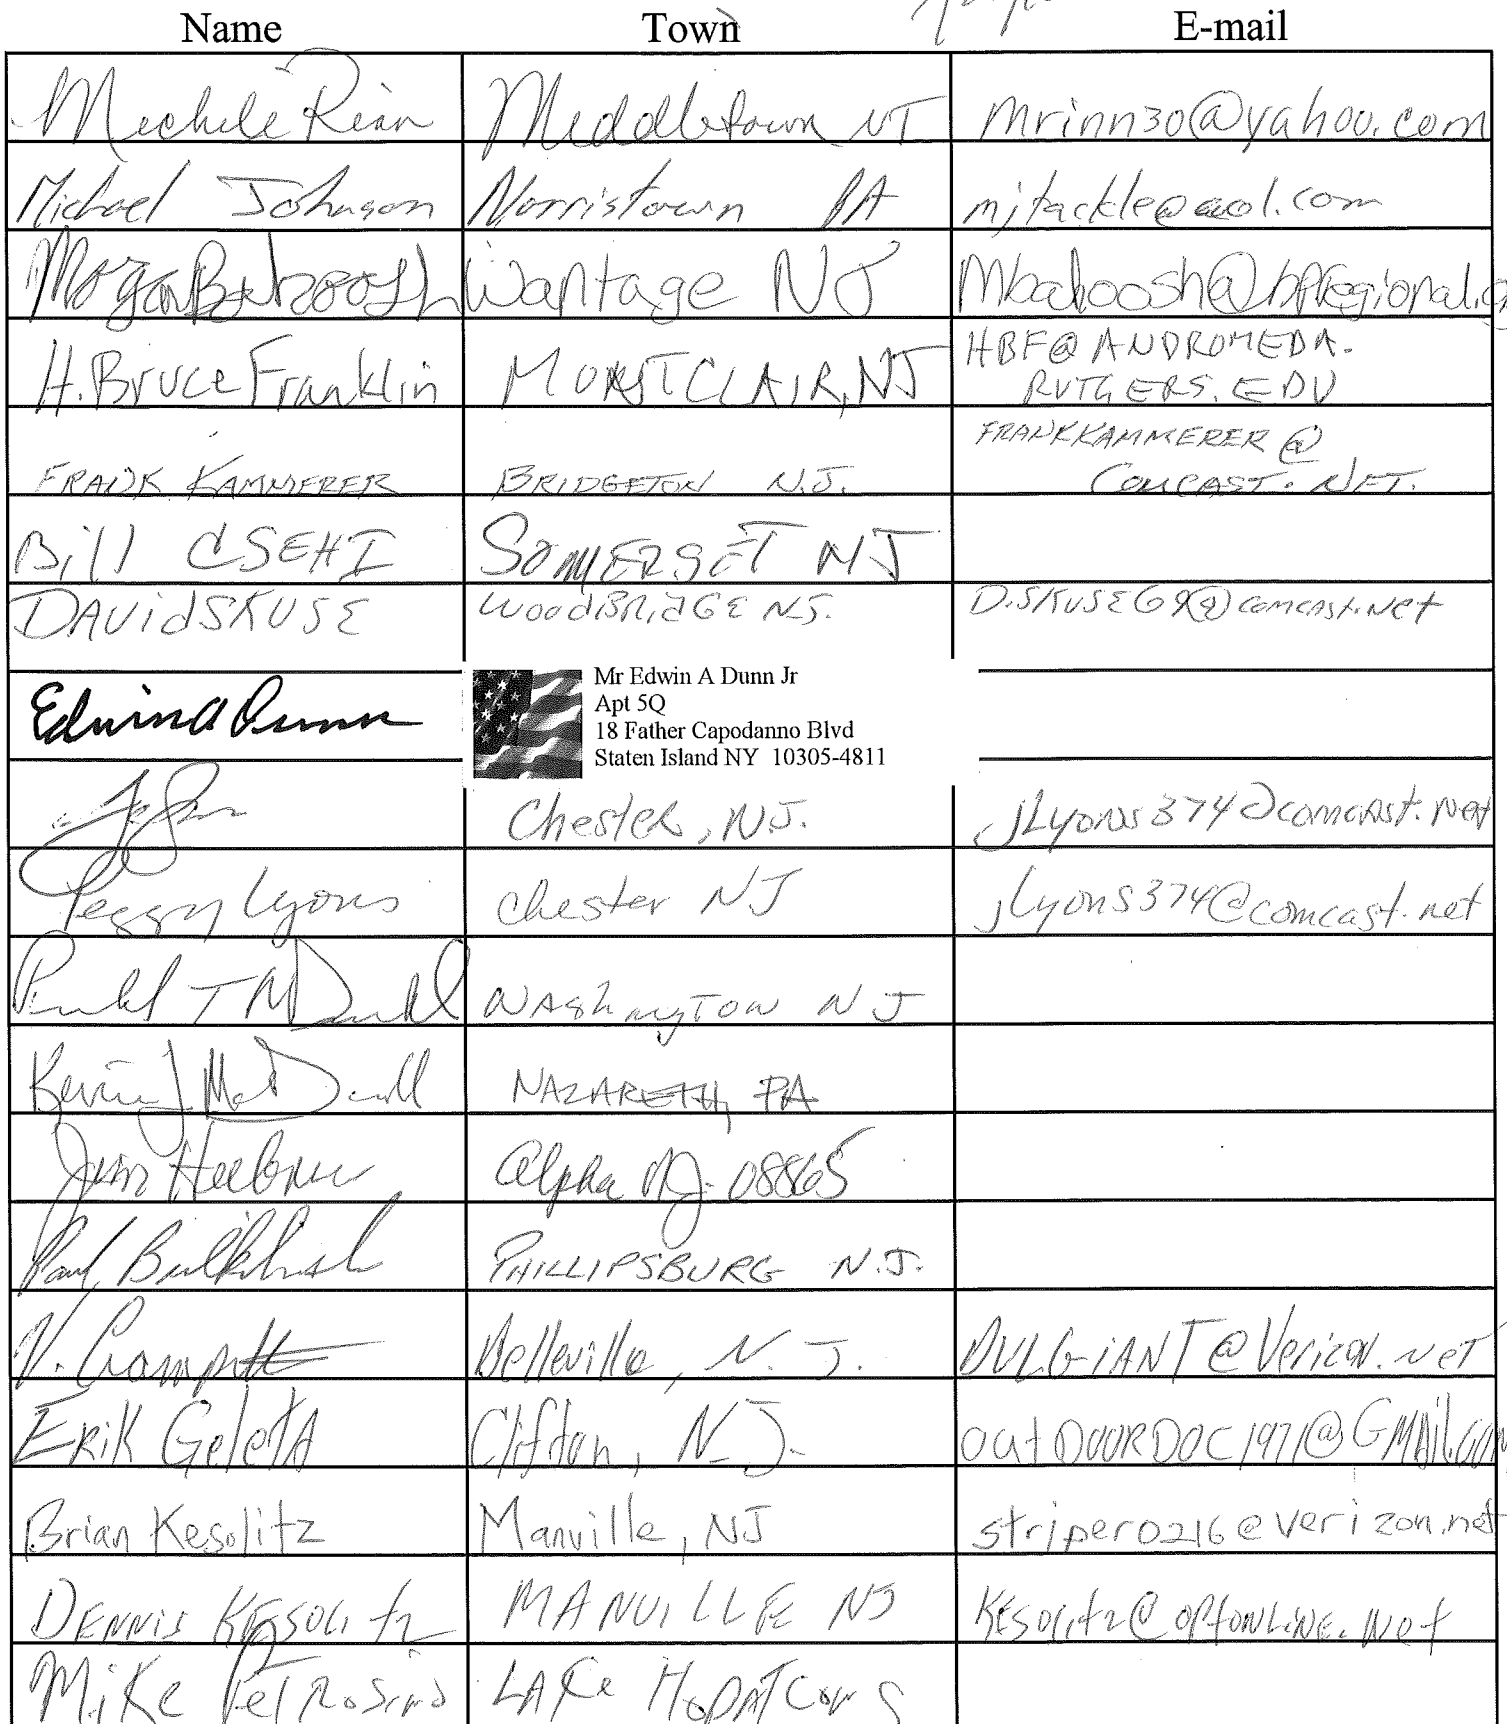 Name Town E-mail
Michele Rinn Middletown NJ mrinn30@yahoo.com
Michael Johnson Norristown PA mjtackle@aol.com
Morgan Bahoosh Wantage NJ Mbahoosh@hpregional.
H. Bruce Franklin MONTCLAIR, NJ HBF@ANDROMEDA.
RUTGERS.EDU
FRANK KAMMERER BRIDGETON N.J. FRANKKAMMERER@
COMCAST.NET.
Bill CSEHI SOMERSET NJ
DAVID SKUSE WOODBRIDGE NJ. D.SKUSE69@comcast.net
Edwin A Dunn Mr Edwin A Dunn Jr
Apt 5Q
18 Father Capodanno Blvd
Staten Island NY 10305-4811
Chester, N.J. jLyons374@comcast.net
Peggy Lyons Chester NJ jlyons374@comcast.net
WAShington NJ
Kevin J McDonell NAZARETH, PA
Heebner Alpha NJ 08865
Paul PHILLIPSBURG N.J.
V. Belleville, N.J. BULGIANT@Verizon.net
ERIK GeletA Clifton, NJ. outDOORDOC1971@GMAil.com
Brian Kesolitz Manville, NJ striper0216@verizon.net
DENNIS KESOLITZ MANVILLE NJ KESOLITZ@OPTONLINE.Net
MiKe PetRosino LAKe HOPATCONG